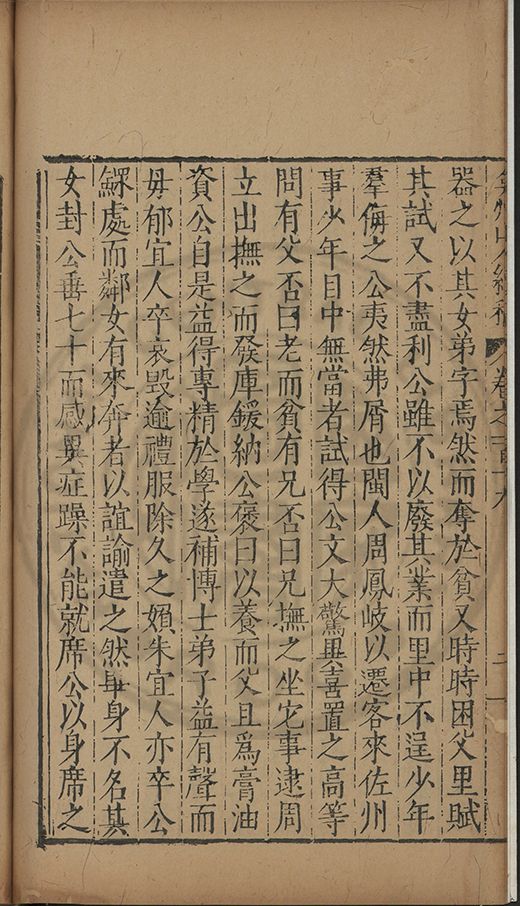 弇州山人續稿 卷之一百十九 二
器之以其女弟字焉然而奪於貧又時時困父里賦
其試又不盡利公雖不以廢其業而里中不逞少年
羣侮之公夷然弗屑也閩人周鳳岐以遷客來佐州
事少年目中無當者試得公文大驚異喜置之高等
問有父否曰老而貧有兄否曰兄撫之坐它事逮周
立出撫之而發庫鍰納公褒曰以養而父且為膏油
資公自是益得專精於學遂補博士弟子益有聲而
毋郁宜人卒哀毀逾禮服除久之嬪朱宜人亦卒公
鰥處而鄰女有來奔者以誼諭遣之然畢身不名其
女封公垂七十而感異症躁不能就席公以身席之